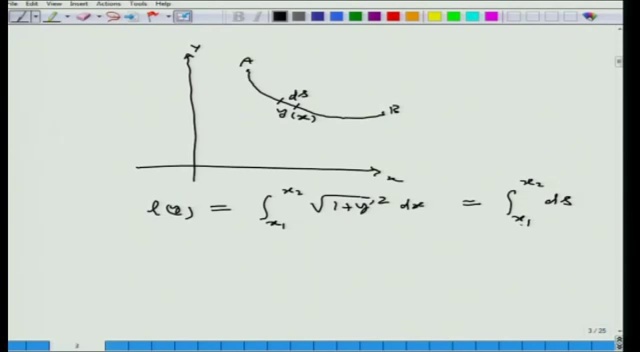 File Edit View Insert Actions Tools Help
Y
A
ds
y(x)
B
x
l(y) = ∫_{x₁}^{x₂} √(1+y'²) dx = ∫_{x₁}^{x₂} ds
3 / 25
3